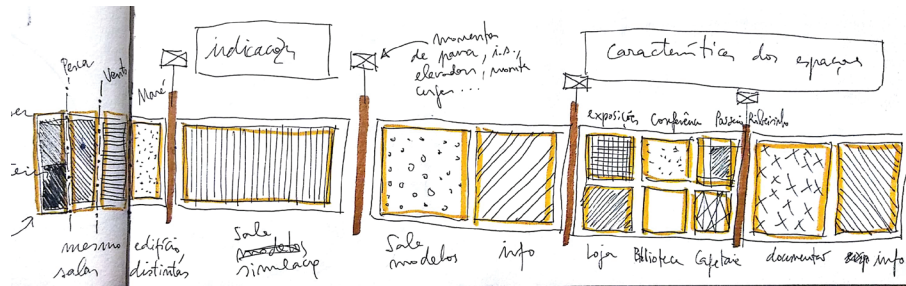 indicações
momentos
de parar, i.s.,
elevador, monta
cargas ...
Características dos espaços
Pesca
Vento
Maré
exposições
Conferência
Passeio Ribeirinho
mesmo edifício
salas distintas
Sala
modelos
simulação
Sala
modelos
info
Loja
Biblioteca
Cafetaria
documentar
info